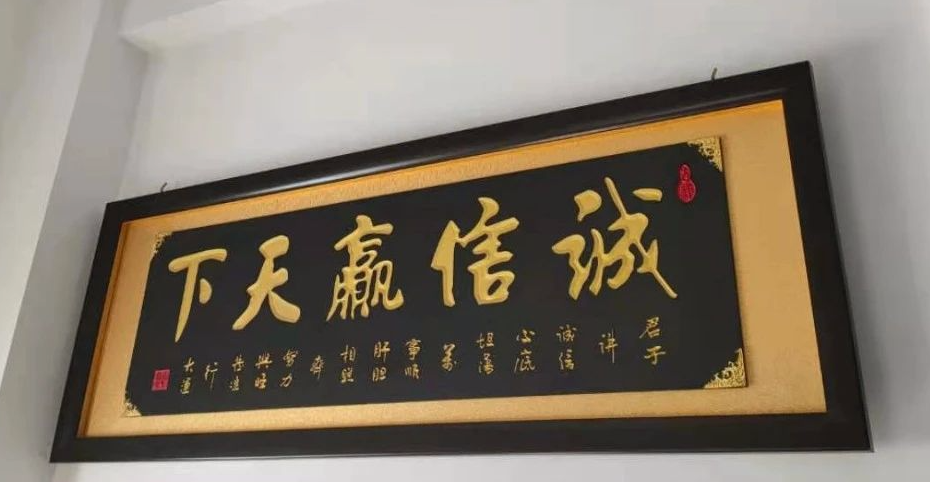 诚信赢天下
君子讲诚信心底坦荡万事顺肝胆相照齐努力兴旺共进行大道